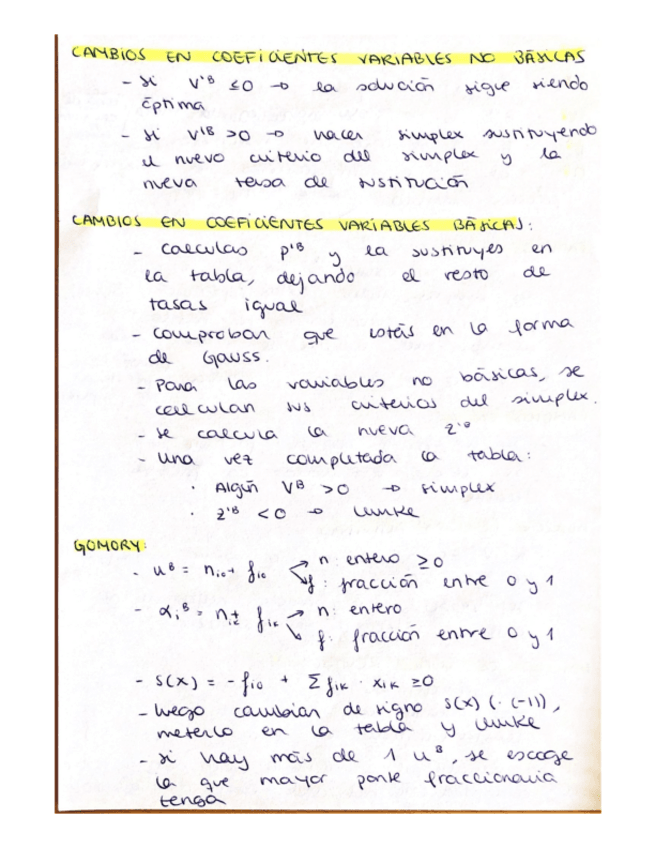 CAMBIOS EN COEFICIENTES VARIABLES NO BÁSICAS
- Si V'ᴮ ≤0 → la solución sigue siendo
óptima
- si V'ᴮ >0 → hacer simplex sustituyendo
el nuevo criterio del simplex y la
nueva tasa de sustitución
CAMBIOS EN COEFICIENTES VARIABLES BÁSICAS:
- calculas p'ᴮ y la sustituyes en
la tabla, dejando el resto de
tasas igual
- comprobar que estás en la forma
de Gauss.
- Para las variables no básicas, se
calculan sus criterios del simplex.
- se calcula la nueva z'ᴮ
- una vez completada la tabla:
· Algún Vᴮ >0 → simplex
· z'ᴮ <0 → Lemke
GOMORY:
- uᴮ = nᵢ₀ + fᵢ₀ → n: entero ≥0
↘ f: fracción entre 0 y 1
- αᵢᴮ = nᵢₖ + fᵢₖ → n: entero
↘ f: fracción entre 0 y 1
- S(x) = - fᵢ₀ + Σ fᵢₖ · xᵢₖ ≥0
- luego cambiar de signo s(x) (· (-1)),
meterlo en la tabla y Lemke
- si hay más de 1 uᴮ, se escoge
la que mayor parte fraccionaria
tenga